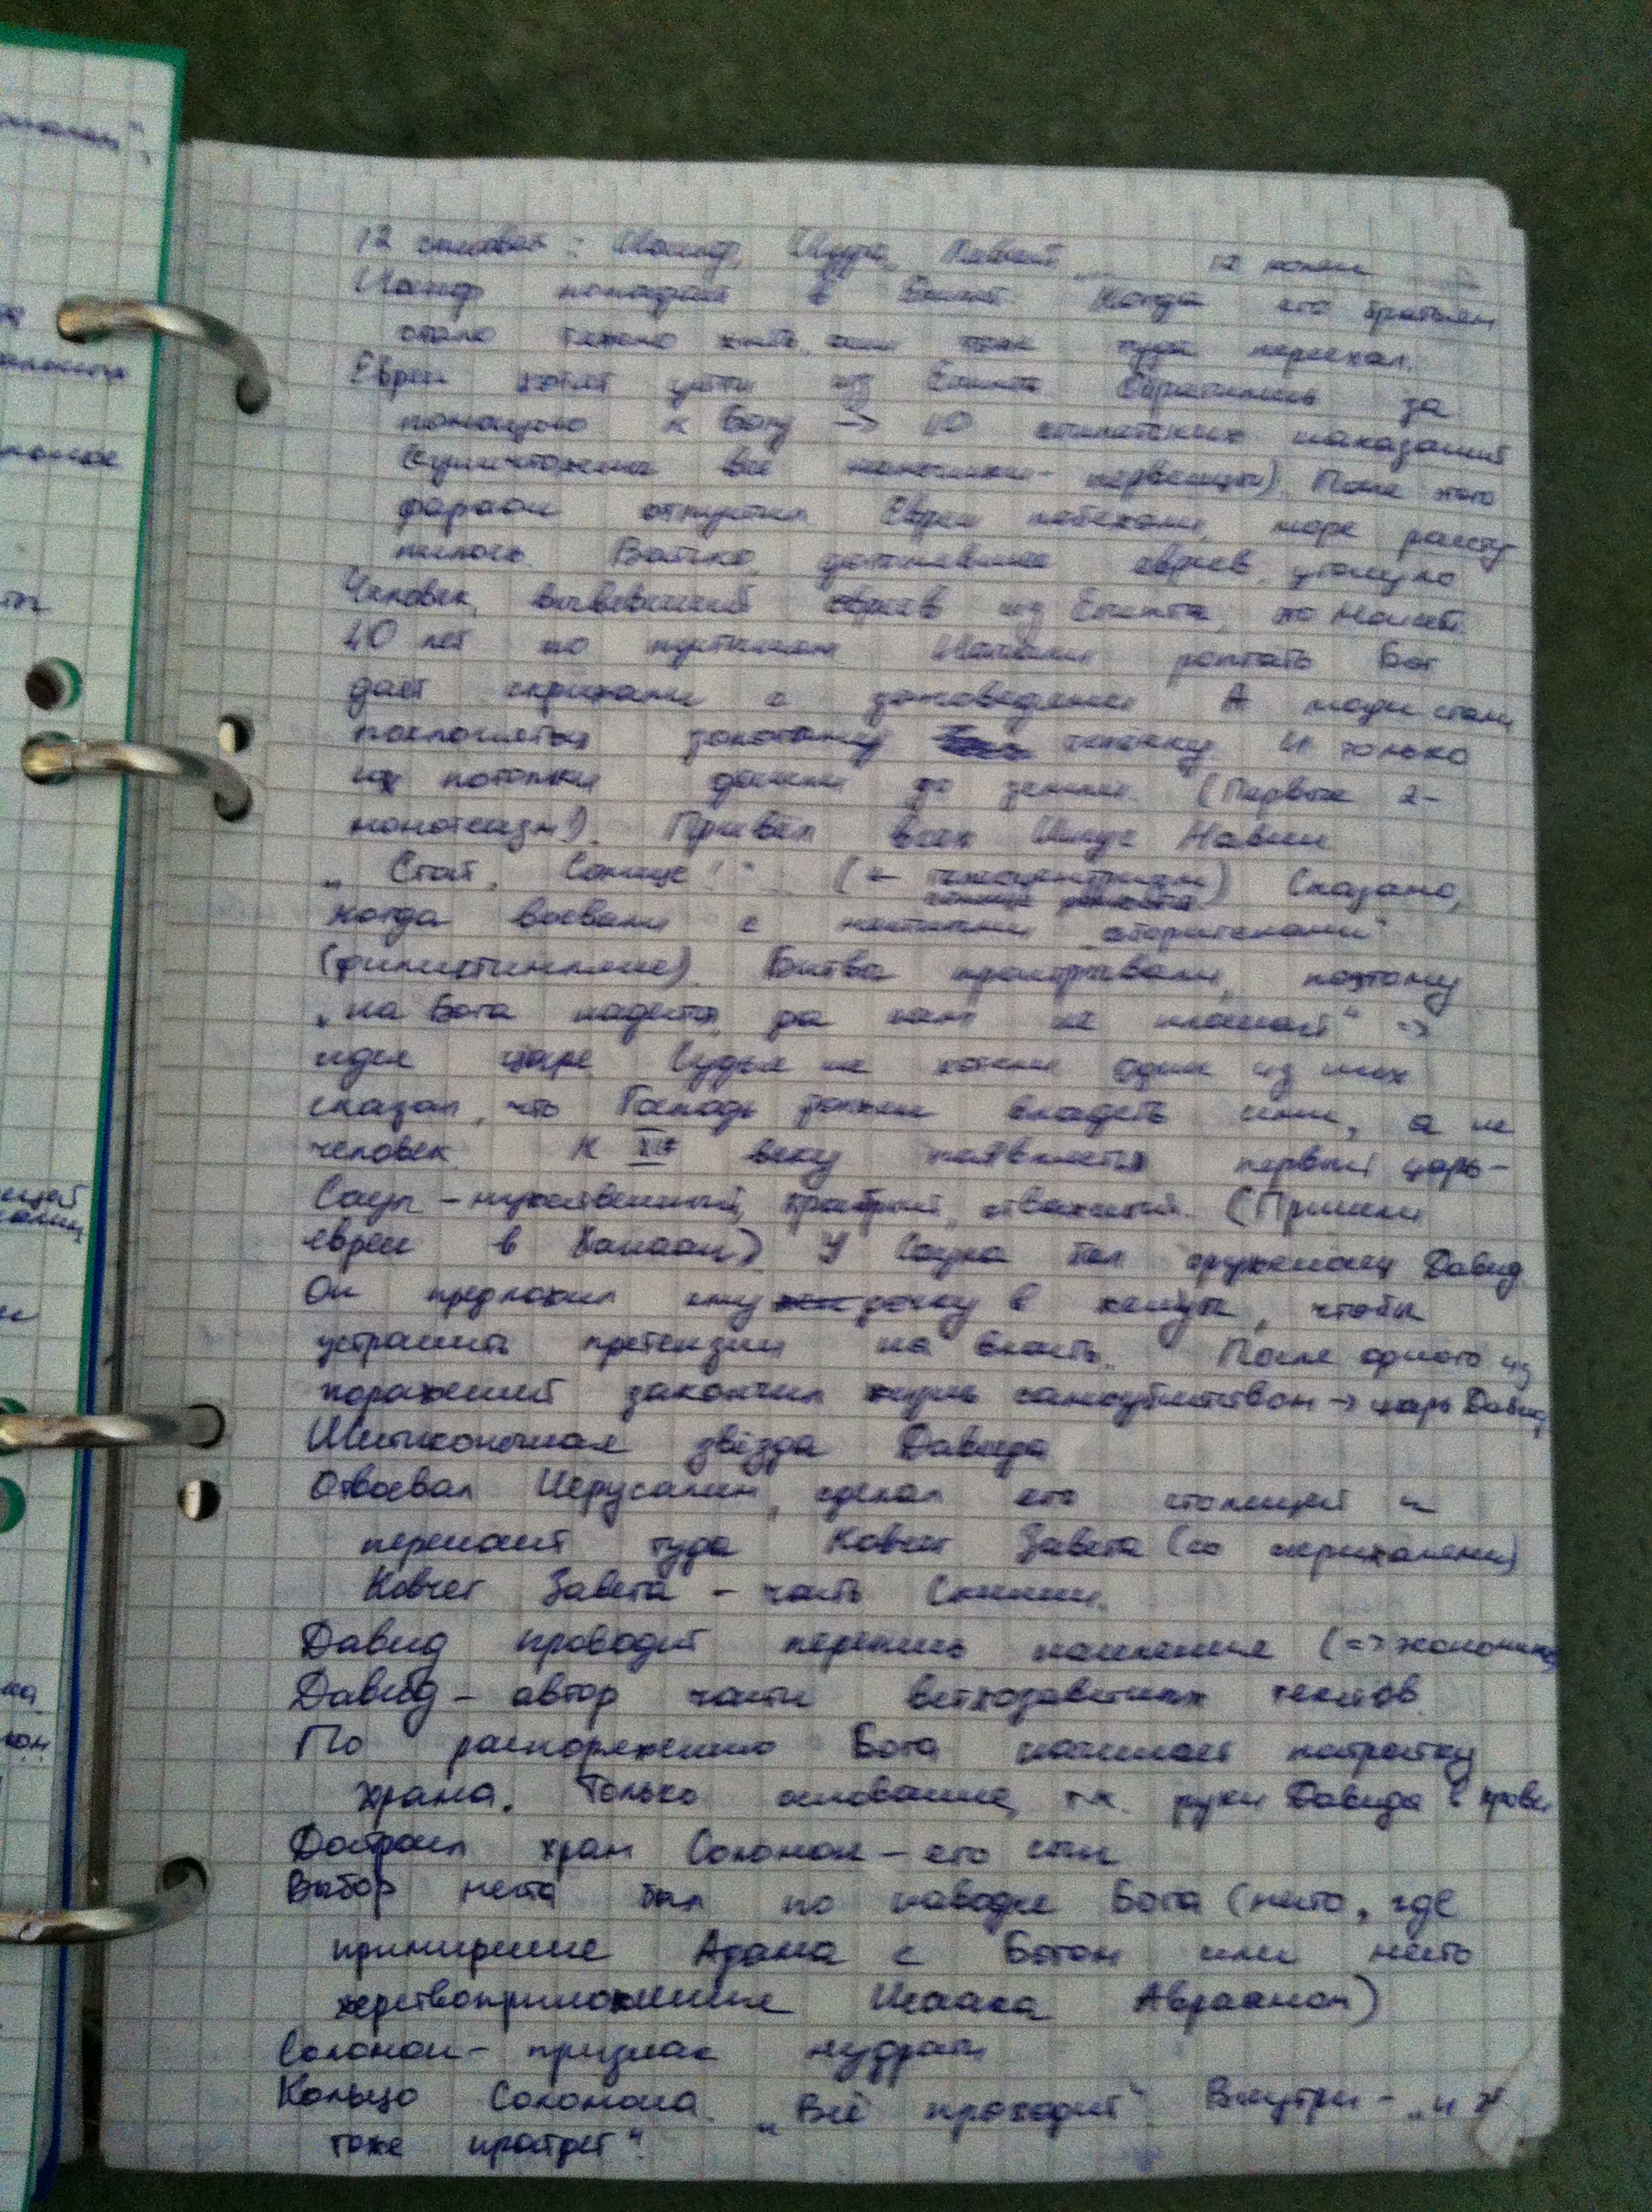 12 сыновей: Иосиф, Иуда, Левий 12 колен
Иосиф попадает в Египет. Когда его братьям
стало тяжело жить, они тоже туда переехал.
Евреи хотят уйти из Египта. Обратились за
помощью к Богу -> 10 египетских наказаний
(уничтожены все мальчики-первенцы). После этого
фараон отпустил. Евреи побежали, море расступ
пилось. Войско, догонявшее евреев, утонуло
Человек, выведший евреев из Египта, то Моисей.
40 лет по пустыням. Начали роптать. Бог
даёт скрижали с заповедями. А люди стали
поклоняться золотому теленку. И только
их потомки дошли до земли. (Первые 2-
монотеизм!). Привёл всех Иисус Навин
„Стой, Солнце!" (<- геоцентризм) Сказано,
когда воевали с местными „старителами"
(филистимляне). Битвы проигрывали, поэтому
„на Бога надейся, да сам не плошай" =>
идея царя. Судьи не хотели. Один из них
сказал, что Господь должен владеть ими, а не
человек. К веку появляется первый царь-
Саул - мужественный, храбрый, отважный. (Пришли
евреи в Ханаан) У Саула был оруженосец Давид.
Он предложил ему дочку в жёны, чтобы
устранить претензии на власть. После одного из
поражений закончил жизнь самоубийством -> царь Давид
Шестиконечная звёзда Давида
Отвоевал Иерусалим, сделал его столицей и
переносит туда Ковчег Завета (со скрижалями)
Ковчег Завета - часть Скинии.
Давид проводит перепись населения (=> экономика
Давид - автор части ветхозаветных текстов.
По распоряжению Бога начинает постройку
храма. Только основание, т.к. руки Давида в крови
Достроил храм Соломон - его сын
Выбор места был по наводке Бога (место, где
примирение Адама с Богом или место
жертвоприношения Исаака Авраамом)
Соломон - признак мудрости
Кольцо Соломона. „Всё проходит". Внутри - „и это
тоже пройдет".